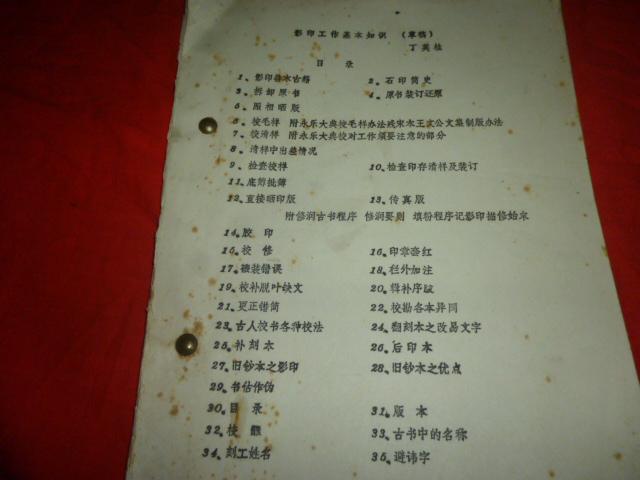 影印工作基本知识 (草稿)
丁英桂
目 录
1、影印善本古籍 2、石印简史
3、拆卸原书 4、原书装订还原
5、照相晒版
6、校毛样 附永乐大典校毛样办法残宋本王文公文集制版办法
7、校清样 附永乐大典校对工作须要注意的部分
8、清样中出差情况
9、检查校样 10、检查印存清样及装订
11、底剪批簿
12、直接晒印版 13、传真版
附修润古书程序 修润要则 填粉程序记影印描修始末
14、胶 印
15、校 修 16、印章套红
17、 装错误 18、栏外加注
19、校补脱叶缺文 20、辑补序跋
21、更正错简 22、校勘各本异同
23、古人校书各种校法 24、翻刻本之改易文字
25、补刻本 26、后印本
27、旧钞本之影印 28、旧钞本之优点
29、书估作伪
30、目 录 31、版 本
32、校 雠 33、古书中的名称
34、刻工姓名 35、避讳字